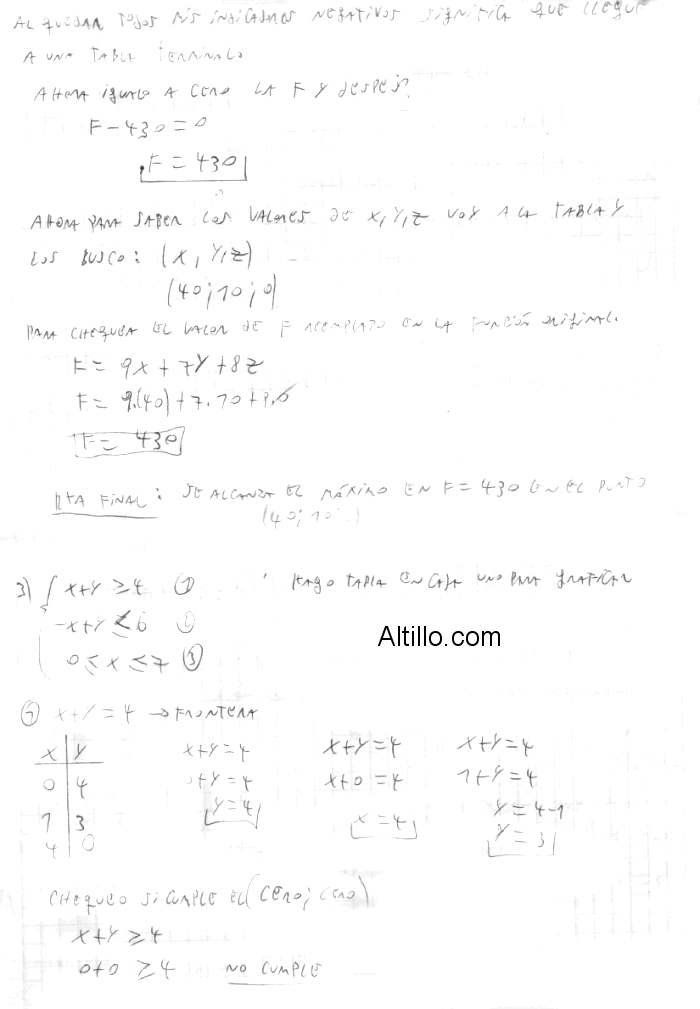 AL QUEDAR TODOS MIS INDICADORES NEGATIVOS SIGNIFICA QUE LLEGUE
A UNA TABLA TERMINAL.
AHORA IGUALO A CERO LA F Y DESPEJ.
F - 430 = 0
F = 430
AHORA PARA SABER LOS VALORES DE X, Y, Z VOY A LA TABLA Y
LOS BUSCO: (X, Y, Z)
(40; 10; 0)
PARA CHEQUEA EL VALOR DE F REEMPLAZO EN LA FUNCIÓN ORIGINAL.
F = 9X + 7Y + 8Z
F = 9.(40) + 7.10 + 8.0
F = 430
RTA FINAL: SE ALCANZA EL MÁXIMO EN F = 430 EN EL PUNTO
(40; 10
3) { X+Y ≥ 4 ①
-X+Y ≤ 6
0 ≤ X ≤ 7 ③
HAGO TABLA EN CADA UNO PARA GRAFICAR
Altillo.com
① X+Y = 4 → FRONTERA
X | Y X+Y=4 X+Y=4 X+Y=4
0 | 4 0+Y=4 X+0=4 1+Y=4
Y=4 Y=4-1
1 | 3 X=4 Y=3
4 | 0
CHEQUEO SI CUMPLE EL (CERO; CERO)
X+Y ≥ 4
0+0 ≥ 4 NO CUMPLE